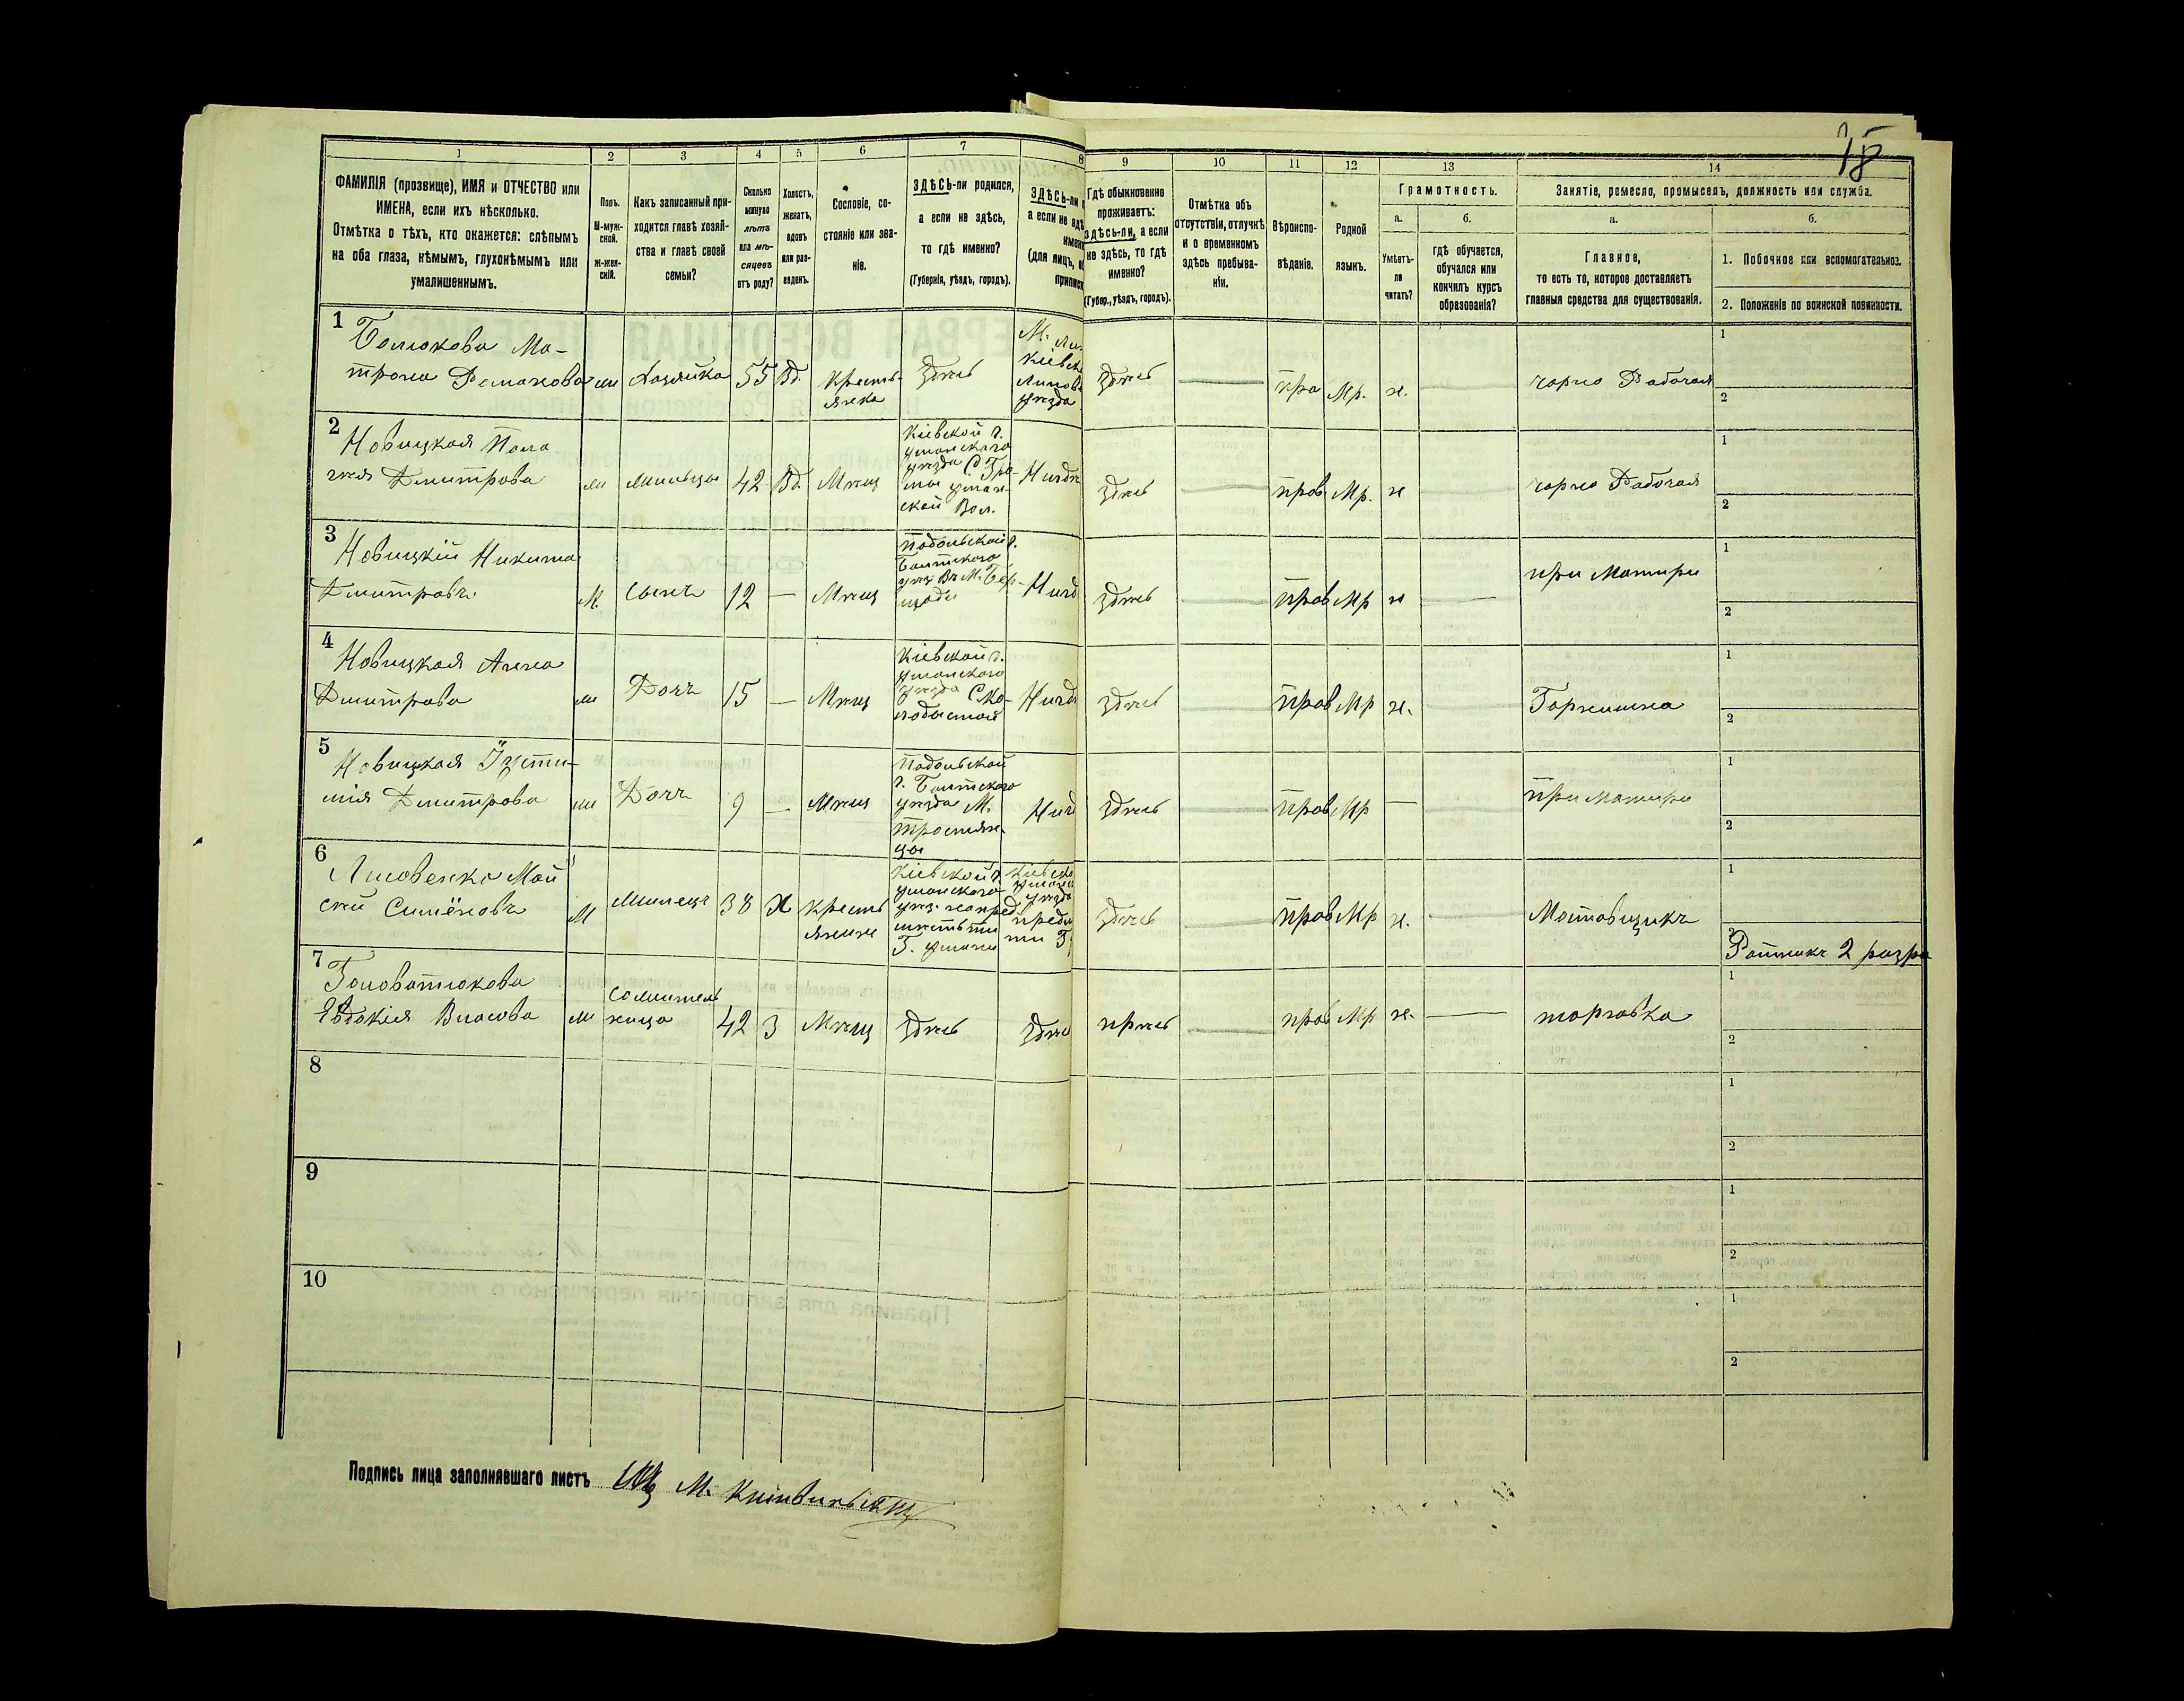 18
1
2
3
4
5
6
7
8
9
10
11
12
13
14
ФАМИЛІЯ (прозвище), ИМЯ и ОТЧЕСТВО или
ИМЕНА, если ихъ нѣсколько.
Отмѣтка о тѣхъ, кто окажется: слѣпымъ
на оба глаза, нѣмымъ, глухонѣмымъ или
умалишеннымъ.
Полъ.
М-муж-
ской.
Ж-жен-
скій.
Какъ записанный при-
ходится главѣ хозяй-
ства и главѣ своей
семьи?
Сколько
минуло
лѣтъ
или мѣ-
сяцевъ
отъ роду?
Холостъ,
женатъ,
вдовъ
или раз-
веденъ.
Сословіе, со-
стояніе или зва-
ніе.
ЗДѢСЬ-ли родился,
а если не здѣсь,
то гдѣ именно?
(Губернія, уѣздъ, городъ).
ЗДѢСЬ-ли
а если не здѣ
имен
(для лицъ, о
приписк
Гдѣ обыкновенно
проживаетъ:
здѣсь-ли, а если
не здѣсь, то гдѣ
именно?
(Губер., уѣздъ, городъ).
Отмѣтка объ
отсутствіи, отлучкѣ
и о временномъ
здѣсь пребыва-
ніи.
Вѣроиспо-
вѣданіе.
Родной
языкъ.
Грамотность.
а.
Умѣетъ-
ли
читать?
б.
гдѣ обучается,
обучался или
кончилъ курсъ
образованія?
Занятіе, ремесло, промыселъ, должность или служба.
а.
Главное,
то есть то, которое доставляетъ
главныя средства для существованія.
б.
1. Побочное или вспомогательное.
2. Положеніе по воинской повинности.
1
Ма-
трона Романова
ж
Хозяйка
55
Вд.
кресть-
янка
здѣсь
Кіевск
Липов
уѣзда
здѣсь
пра
Мр.
н.
чорно Рабочая
1
2
2
Новицкая Пела
гея Дмитрова
ж
жилица
42
Вд.
Мѣщ
Кіевской г.
уманскаго
уѣзда С. Гро-
ды уман-
ской Вол.
здѣсь
прав.
Мр.
н
чорно Рабочая
1
2
3
Новицкій Никита
Дмитровъ.
М.
Сынъ
12
—
Мѣщ
Подольской г.
Балтского
уѣз. Въ М. Бер-
шади
здѣсь
прав
Мр
н
при Матери
1
2
4
Новицкая Анна
Дмитрова
ж
Дочь
15
—
Мѣщ
Кіевской г.
уманского
уѣзда С. Ко-
лодистой
здѣсь
прав
Мр
н.
Горнишна
1
2
5
Новицкая Іусти-
нія Дмитрова
ж
Дочь
9
—
Мѣщ
Подольской
г. Балтского
уѣзда М.
тростян-
ца
здѣсь
прав
Мр
—
при Матери
1
2
6
Лисовенко Мой
сей Симёновъ
М
жилецъ
38
Х
кресть
янинъ
Кіевской г.
уманского
уѣз. на пред
мѣстьти
Г. Умани
здѣсь
прав
Мр
н.
1
2
Ратникъ 2 разря
7
Головатюкова
Евдокія Власова
ж
сожитель
ница
42
З
Мѣщ
здѣсь
здѣс
прав
Мр
н.
торговка
1
2
8
1
2
9
1
2
10
1
2
Подпись лица заполнявшаго листъ
М.